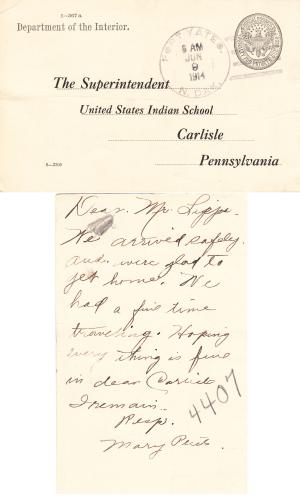 1—367 a
Department of the Interior.
FORT YATES,
6 AM
JUN
9
1914
N. DAK.
The Superintendent
United States Indian School
Carlisle
Pennsylvania
Dear Mr. Lipps.
We arrived safely.
and were glad to
get home. We
had a fine time
traveling. Hoping
every thing is fine
in dear Carlisle
I remain.
Resp.
Mary
4407